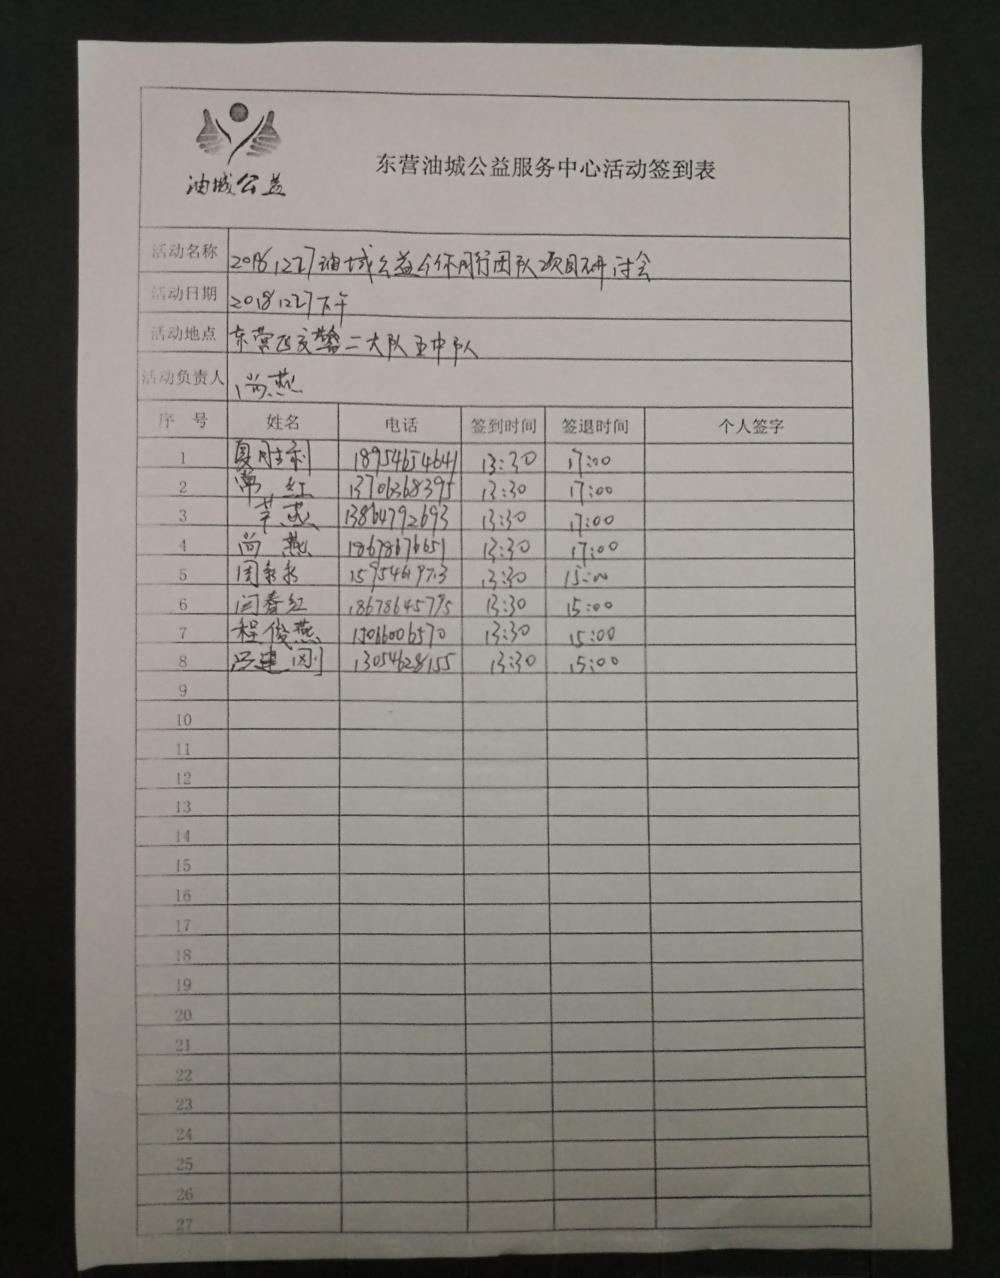 油城公益
东营油城公益服务中心活动签到表
活动名称 20181227油城公益与你同行团队项目研讨会
活动日期 20181227下午
活动地点 东营区交警二大队五中队
活动负责人 尚燕
序 号 姓名 电话 签到时间 签退时间 个人签字
1 夏胜利 18954654641 13:30 17:00
2 常红 13706368395 13:30 17:00
3 燕 13864792693 13:30 17:00
4 尚燕 18678676651 13:30 17:00
5 13:30 15:00
6 闫春红 18678645795 13:30 15:00
7 程俊燕 15066006570 13:30 15:00
8 建刚 13054628155 13:30 15:00
9
10
11
12
13
14
15
16
17
18
19
20
21
22
23
24
25
26
27